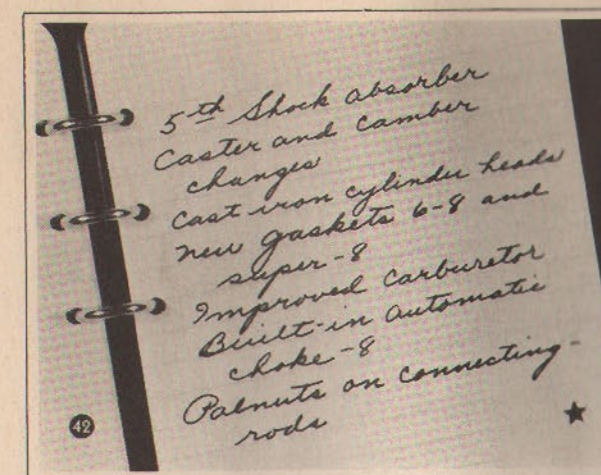 5th Shock absorber
Caster and camber
changes
Cast iron cylinder heads
new gaskets 6-8 and
super-8
Improved carburetor
Built-in automatic
choke-8
Palnuts on connecting-
rods
42